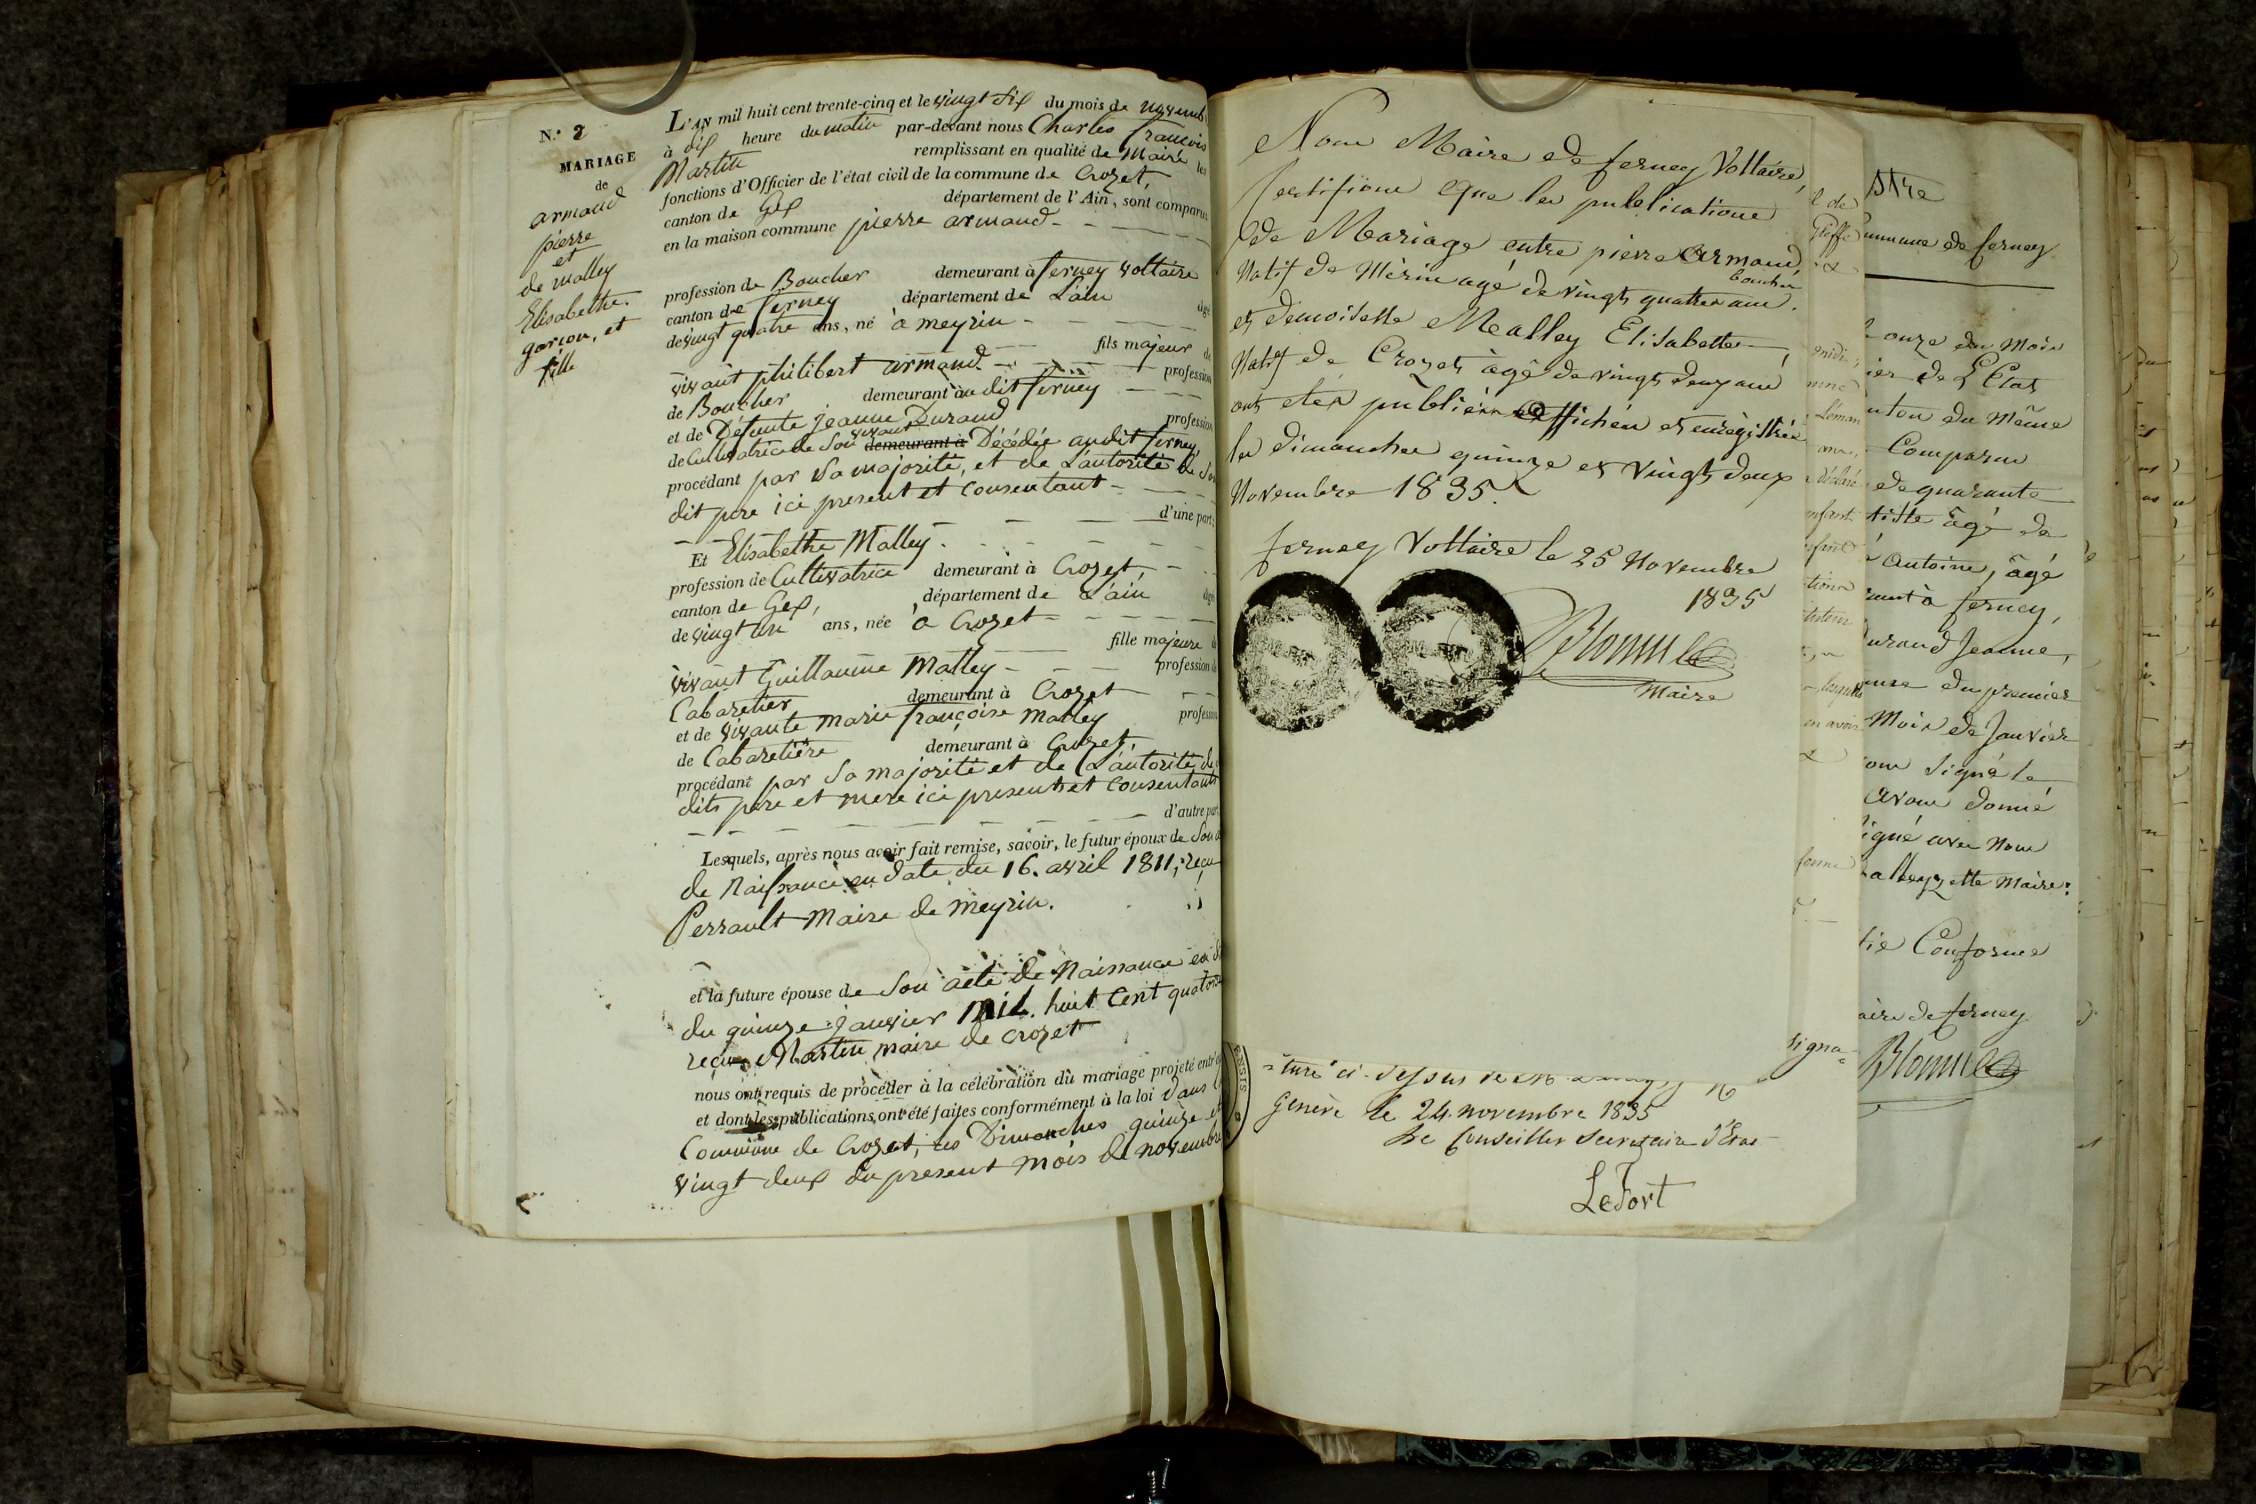 N.° 2
MARIAGE
de
armand
pierre
et
de malley
Elisabethe.
garçon, et
fille
L'AN mil huit cent trente-cinq et le vingt six du mois de novemb
à dix heure du matin par-devant nous Charles François
Martin remplissant en qualité de Maire les
fonctions d'Officier de l'état civil de la commune de Crozet,
canton de Gex département de l'Ain, sont comparus
en la maison commune pierre armand
profession de Boucher demeurant à ferney voltaire
canton de ferney département de L'ain âgé
de vingt quatre ans, né à meyrin
fils majeur de
vivant philibert armand profession
de Boucher demeurant au dit ferney
et de Défunte jeanne Durand profession
de Cultivatrice de son vivant demeurant à Décédée audit ferney
procédant par sa majorité, et de L'autorité de son
dit père ici present et consentant
d'une part;
Et Elisabethe Malley
profession de Cultivatrice demeurant à Crozet
canton de Gex, département de L'ain âgée
de vingt un ans, née à Crozet
fille majeure de
vivant Guillaume Malley profession de
Cabaretier demeurant à Crozet
et de vivante marie françoise malley profession
de Cabaretière demeurant à Crozet,
procédant par sa majorité et de L'autorité de
dits père et mere ici presents et consentants
d'autre part
Lesquels, après nous avoir fait remise, savoir, le futur époux de son a
de Naissance en date du 16. avril 1811, reçu
Perrault Maire de meyrin.
et la future épouse de son acte de Naissance en d
du quinze janvier mil. huit cent quatorze
reçu Martin maire de crozet
nous ont requis de procéder à la célébration du mariage projeté entr'e
et dont les publications ont été faites conformément à la loi dans
Commune de Crozet, les Dimanches quinze et
vingt deux du present mois de novembre
Nous Maire de ferney Voltaire,
Certifions que les publications
de Mariage entre pierre Armand,
boucher
Natif de Mérin agé de vingt quatre ans.
et demoiselle Mealley Elisabette,
Natif de Crozet àgé de vingt deux ans
ont étés publiées affichéu et enregistrée
les dimanches quinze et vingt deux
Novembre 1835.
ferney Voltaire le 25 Novembre
1835
Maire
signa=
=ture ci-dessus de
Genève le 24 novembre 1835
Le Conseiller Secretaire d'Etat
LeFort
stre
ommune de ferney
onze du Mois
ier de L'Etat
nton du Même
Comparu
de quarante
tiste âgé de
Antoine, âgé
rant à ferney,
urand Jeanne,
ouse du premier
Mois de Janvier
ons signé le
avons donné
igné avec Nous
Maire:
ie Conforme
aire de ferney